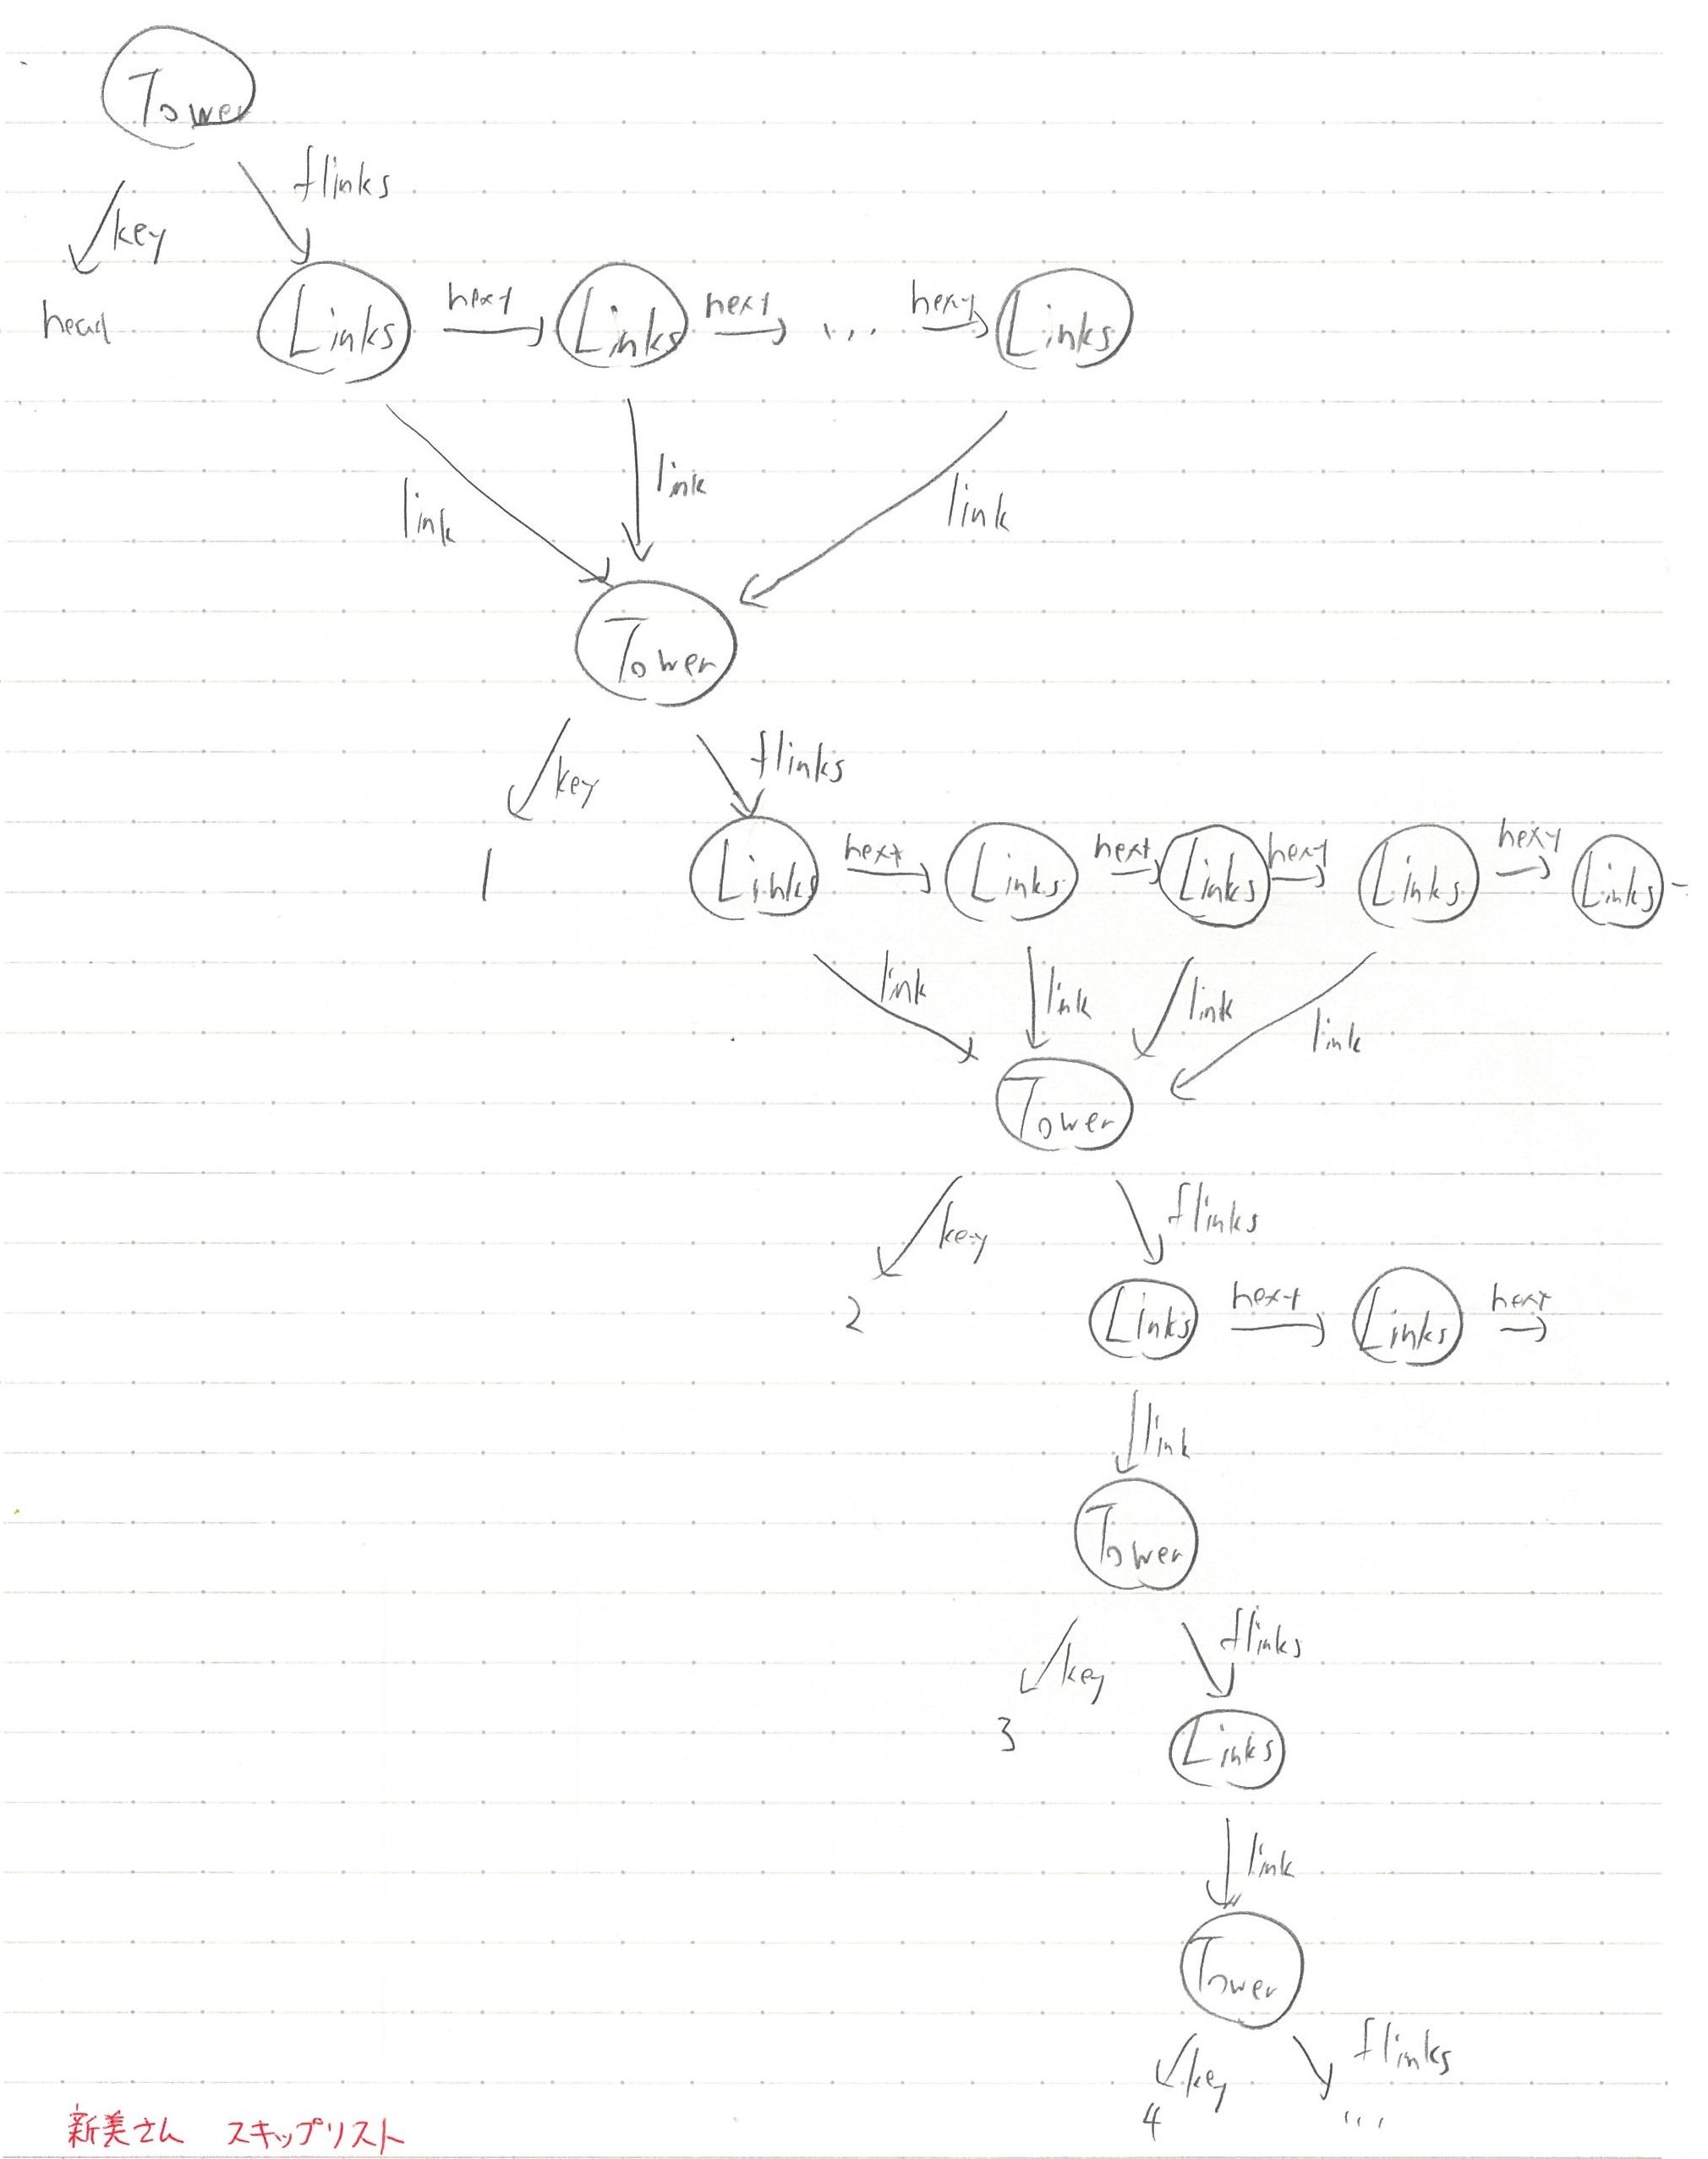 Tower
flinks
key
head
Links next Links next ... next Links
link link link
Tower
key flinks
1
Links next Links next Links next Links next Links
link link link link
Tower
key flinks
2
Links next Links next
link
Tower
key flinks
3
Links
link
Tower
key flinks
4 ...
新美さん スキップリスト